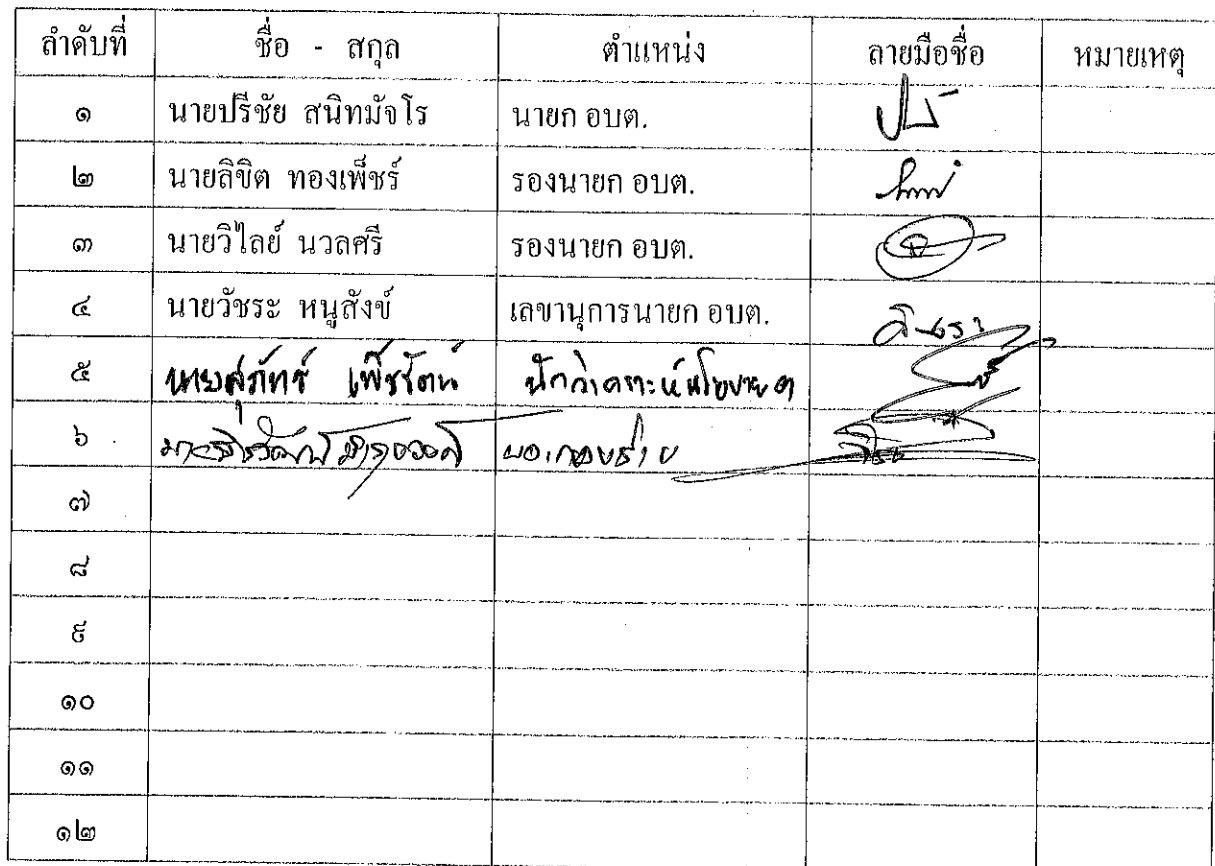 ลำดับที่ ชื่อ - สกุล ตำแหน่ง ลายมือชื่อ หมายเหตุ
๑ นายปรีชัย สนิทมัจโร นายก อบต.
๒ นายลิขิต ทองเพ็ชร์ รองนายก อบต.
๓ นายวิไลย์ นวลศรี รองนายก อบต.
๔ นายวัชระ หนูสังข์ เลขานุการนายก อบต.
๕ เพ็ชรรัตน์ นักวิเคราะห์นโยบายฯ
๖
๗
๘
๙
๑๐
๑๑
๑๒